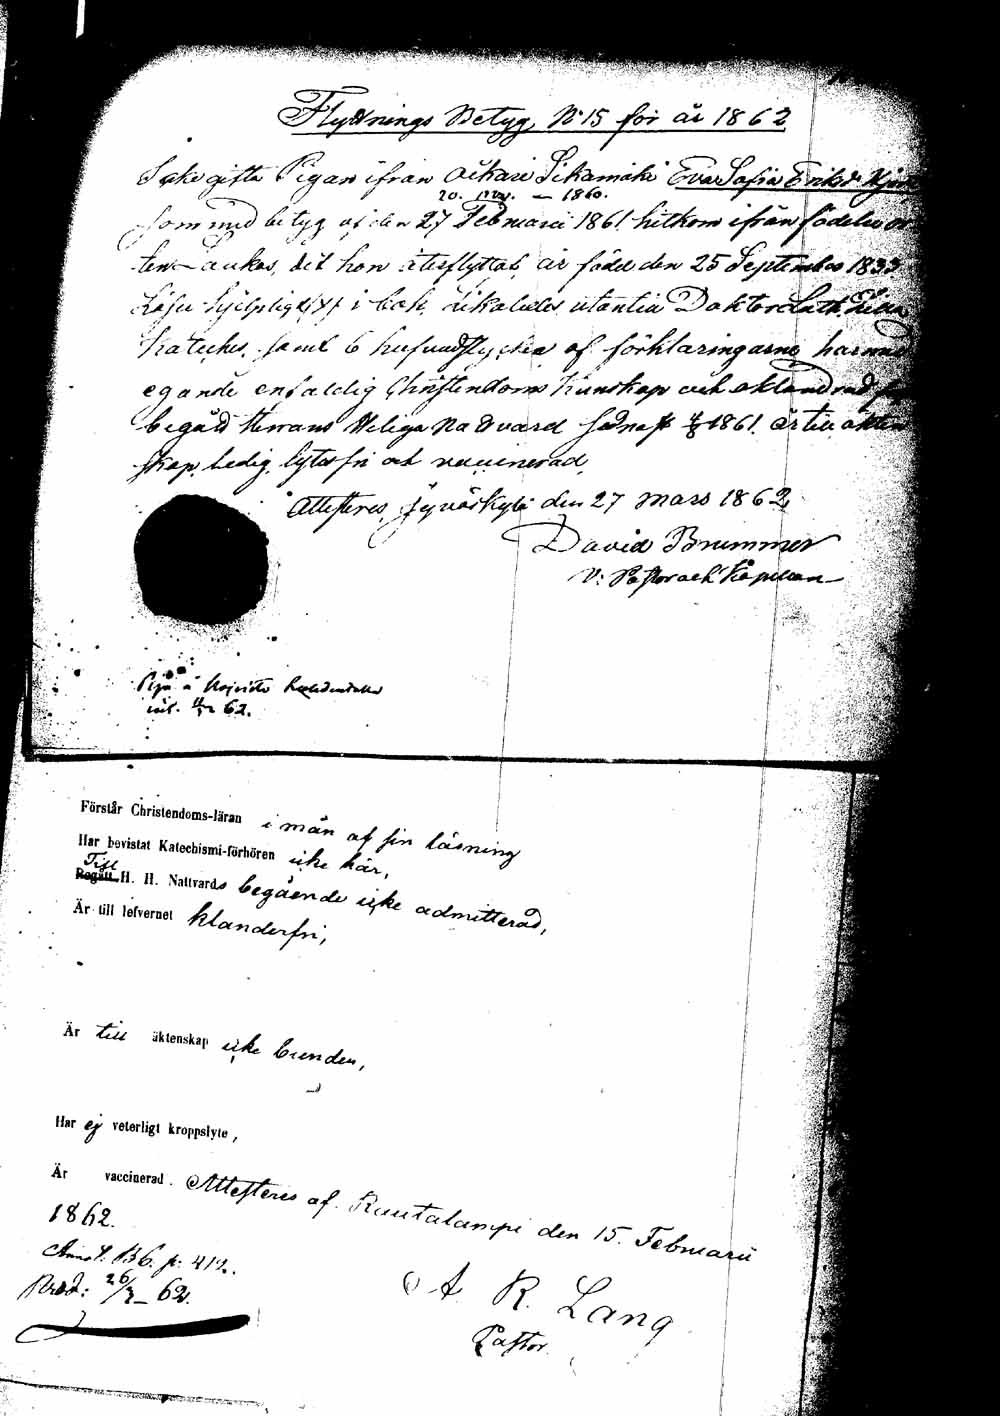 Flyttnings Betyg, N:15 för år 1862
Icke gifta Pigan ifrån Sikamäki Eva Sofia Eriksd.
20. Nov. — 1860.
som med betyg af den 27 Februarii 1861 hitkom ifrån födelse or
ten Laukas, dit hon återflyttat, är född den 25 September 1833
Läser hjelpligt i bok, likaledes utantill Doktor Luth. Lilla
Kateches, samt 6 hufvudstycken af förklaringarne, har med
egande enfaldig Christendoms kunskap och oklandrad
begått Herrans Heliga Nattvard sednast 1861. är till äkten
skap ledig, lytesfri och vaccinerad,
Attesteras Jyväskylä den 27 Mars 1862,
David Brummer
V: Pastor och Kapellan
Piga
62.
Förstår Christendoms-läran i mån af sin läsning
Har bevistat Katechismi-förhören icke här,
Till
Begått H. H. Nattvards begående icke admitterad,
Är till lefvernet klanderfri,
Är till äktenskap icke bunden,
Har ej veterligt kroppslyte,
Är vaccinerad. Attesteras af. Rautalampi den 15. Februarii
1862.
Annot. B6. p. 412.
Prod: 26/3 – 62.
A. R. Lang
Pastor.